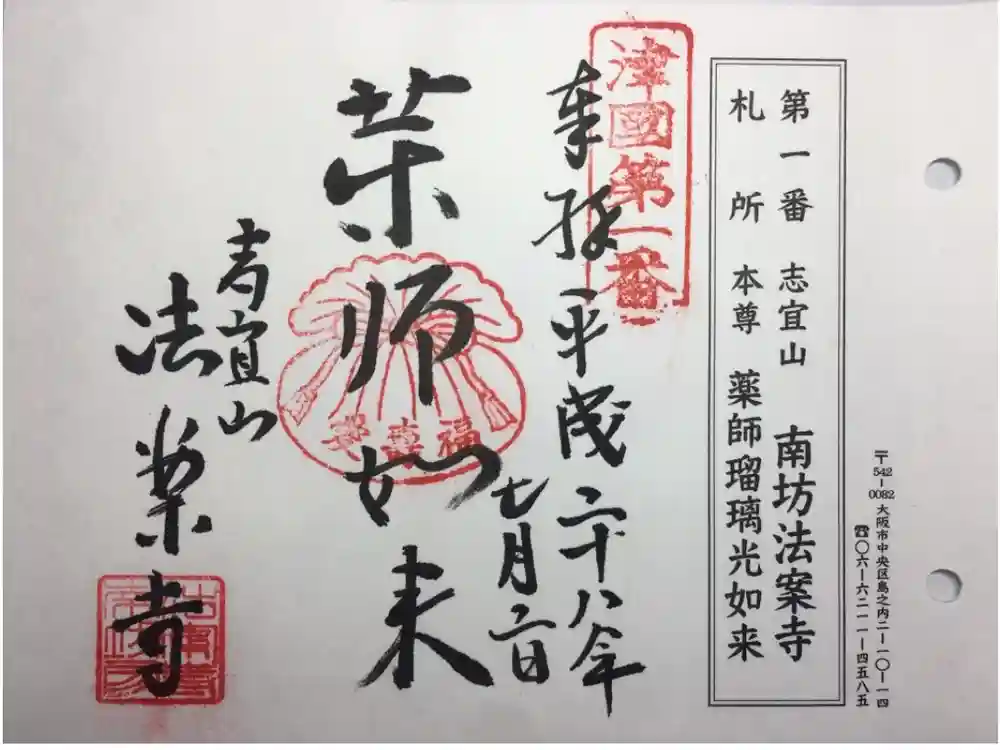 〒542-0082 大阪市中央区島之内二-一〇-一四
☎〇六-六二一一-四五八五
第一番 志宜山 南坊法案寺
札所 本尊 薬師瑠璃光如来
津國第一番
奉拝 平成二十八年
七月二日
薬師如来
志宜山
法案寺